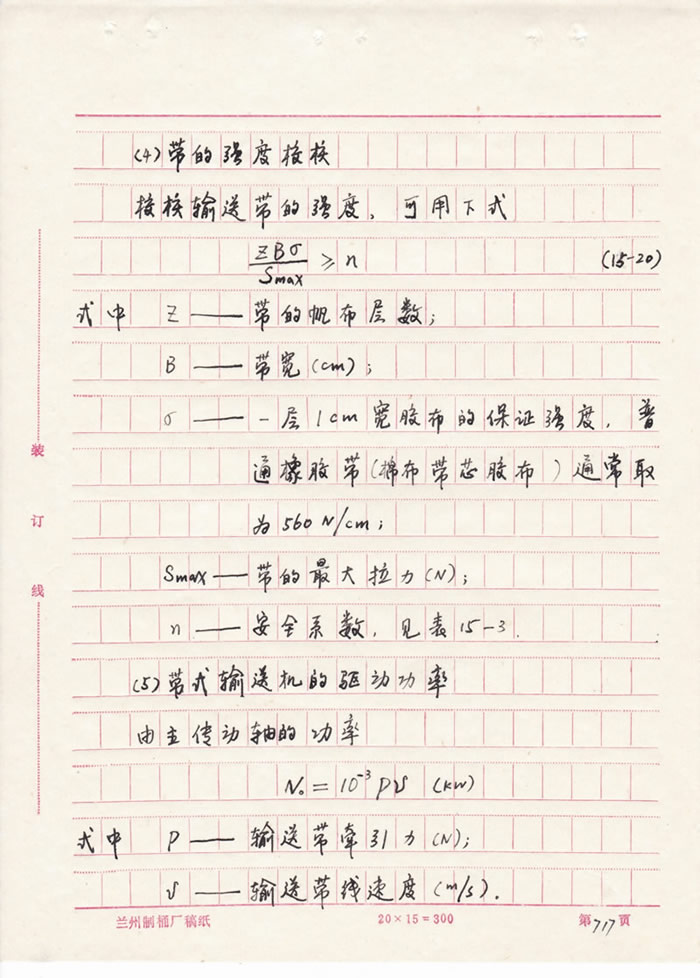 (4)带的强度校核
校核输送带的强度,可用下式
ZBσ/Smax ≥ n (15-20)
式中 Z —— 带的帆布层数;
B —— 带宽(cm);
σ —— 一层1cm宽胶布的保证强度,普
通橡胶带(棉布带芯胶布)通常取
为560N/cm;
Smax —— 带的最大拉力(N);
n —— 安全系数,见表15-3.
(5)带式输送机的驱动功率
由主传动轴的功率
N₀=10⁻³PV (kW)
式中 P —— 输送带牵引力(N);
V —— 输送带线速度(m/s).
装订线
兰州制桶厂稿纸 20×15=300 第717页